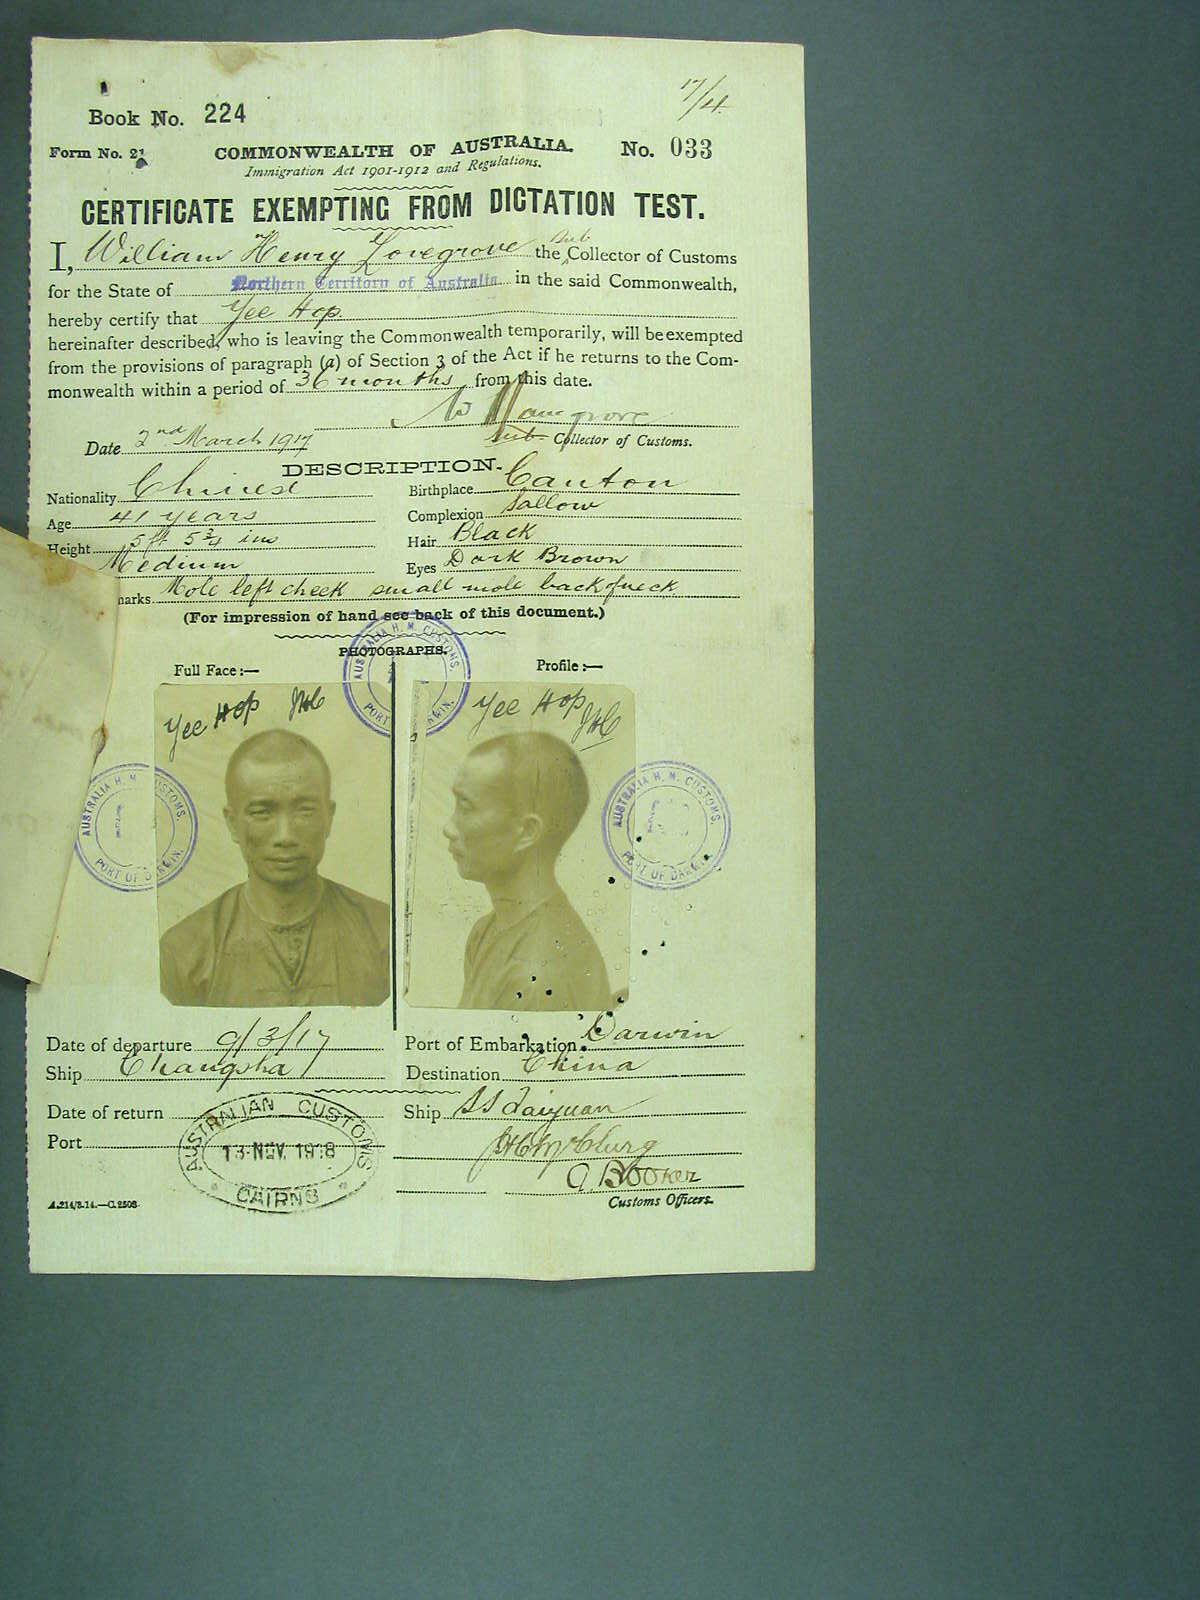 17/4.
Book No. 224
Form No. 21 COMMONWEALTH OF AUSTRALIA. No. 033
Immigration Act 1901-1912 and Regulations.
CERTIFICATE EXEMPTING FROM DICTATION TEST.
I, William Henry Lovegrove the Sub Collector of Customs
for the State of Northern Territory of Australia in the said Commonwealth,
hereby certify that Yee Hop.
hereinafter described, who is leaving the Commonwealth temporarily, will be exempted
from the provisions of paragraph (a) of Section 3 of the Act if he returns to the Com-
monwealth within a period of 36 months from this date.
Date 2nd March 1917 Sub Collector of Customs.
DESCRIPTION.
Nationality Chinese Birthplace Canton
Age 41 years Complexion Sallow
Height 5 ft 5 3/4 ins Hair Black
Medium Eyes Dark Brown
marks Mole left cheek small mole back of neck
(For impression of hand see back of this document.)
PHOTOGRAPHS.
Full Face:— Profile:—
AUSTRALIA H. M. CUSTOMS. PORT DARWIN.
Yee Hop JHC Yee Hop JHC
AUSTRALIA H. M. CUSTOMS. PORT OF DARWIN.
AUSTRALIA H. M. CUSTOMS. PORT OF DARWIN.
Date of departure 9/3/17 Port of Embarkation Darwin
Ship Changsha Destination China
Date of return Ship SS Taiyuan
Port
AUSTRALIAN CUSTOMS 13 NOV. 1918 CAIRNS
JHC McClurg
A. Booker
A.214/3.14.—C.2508. Customs Officers.